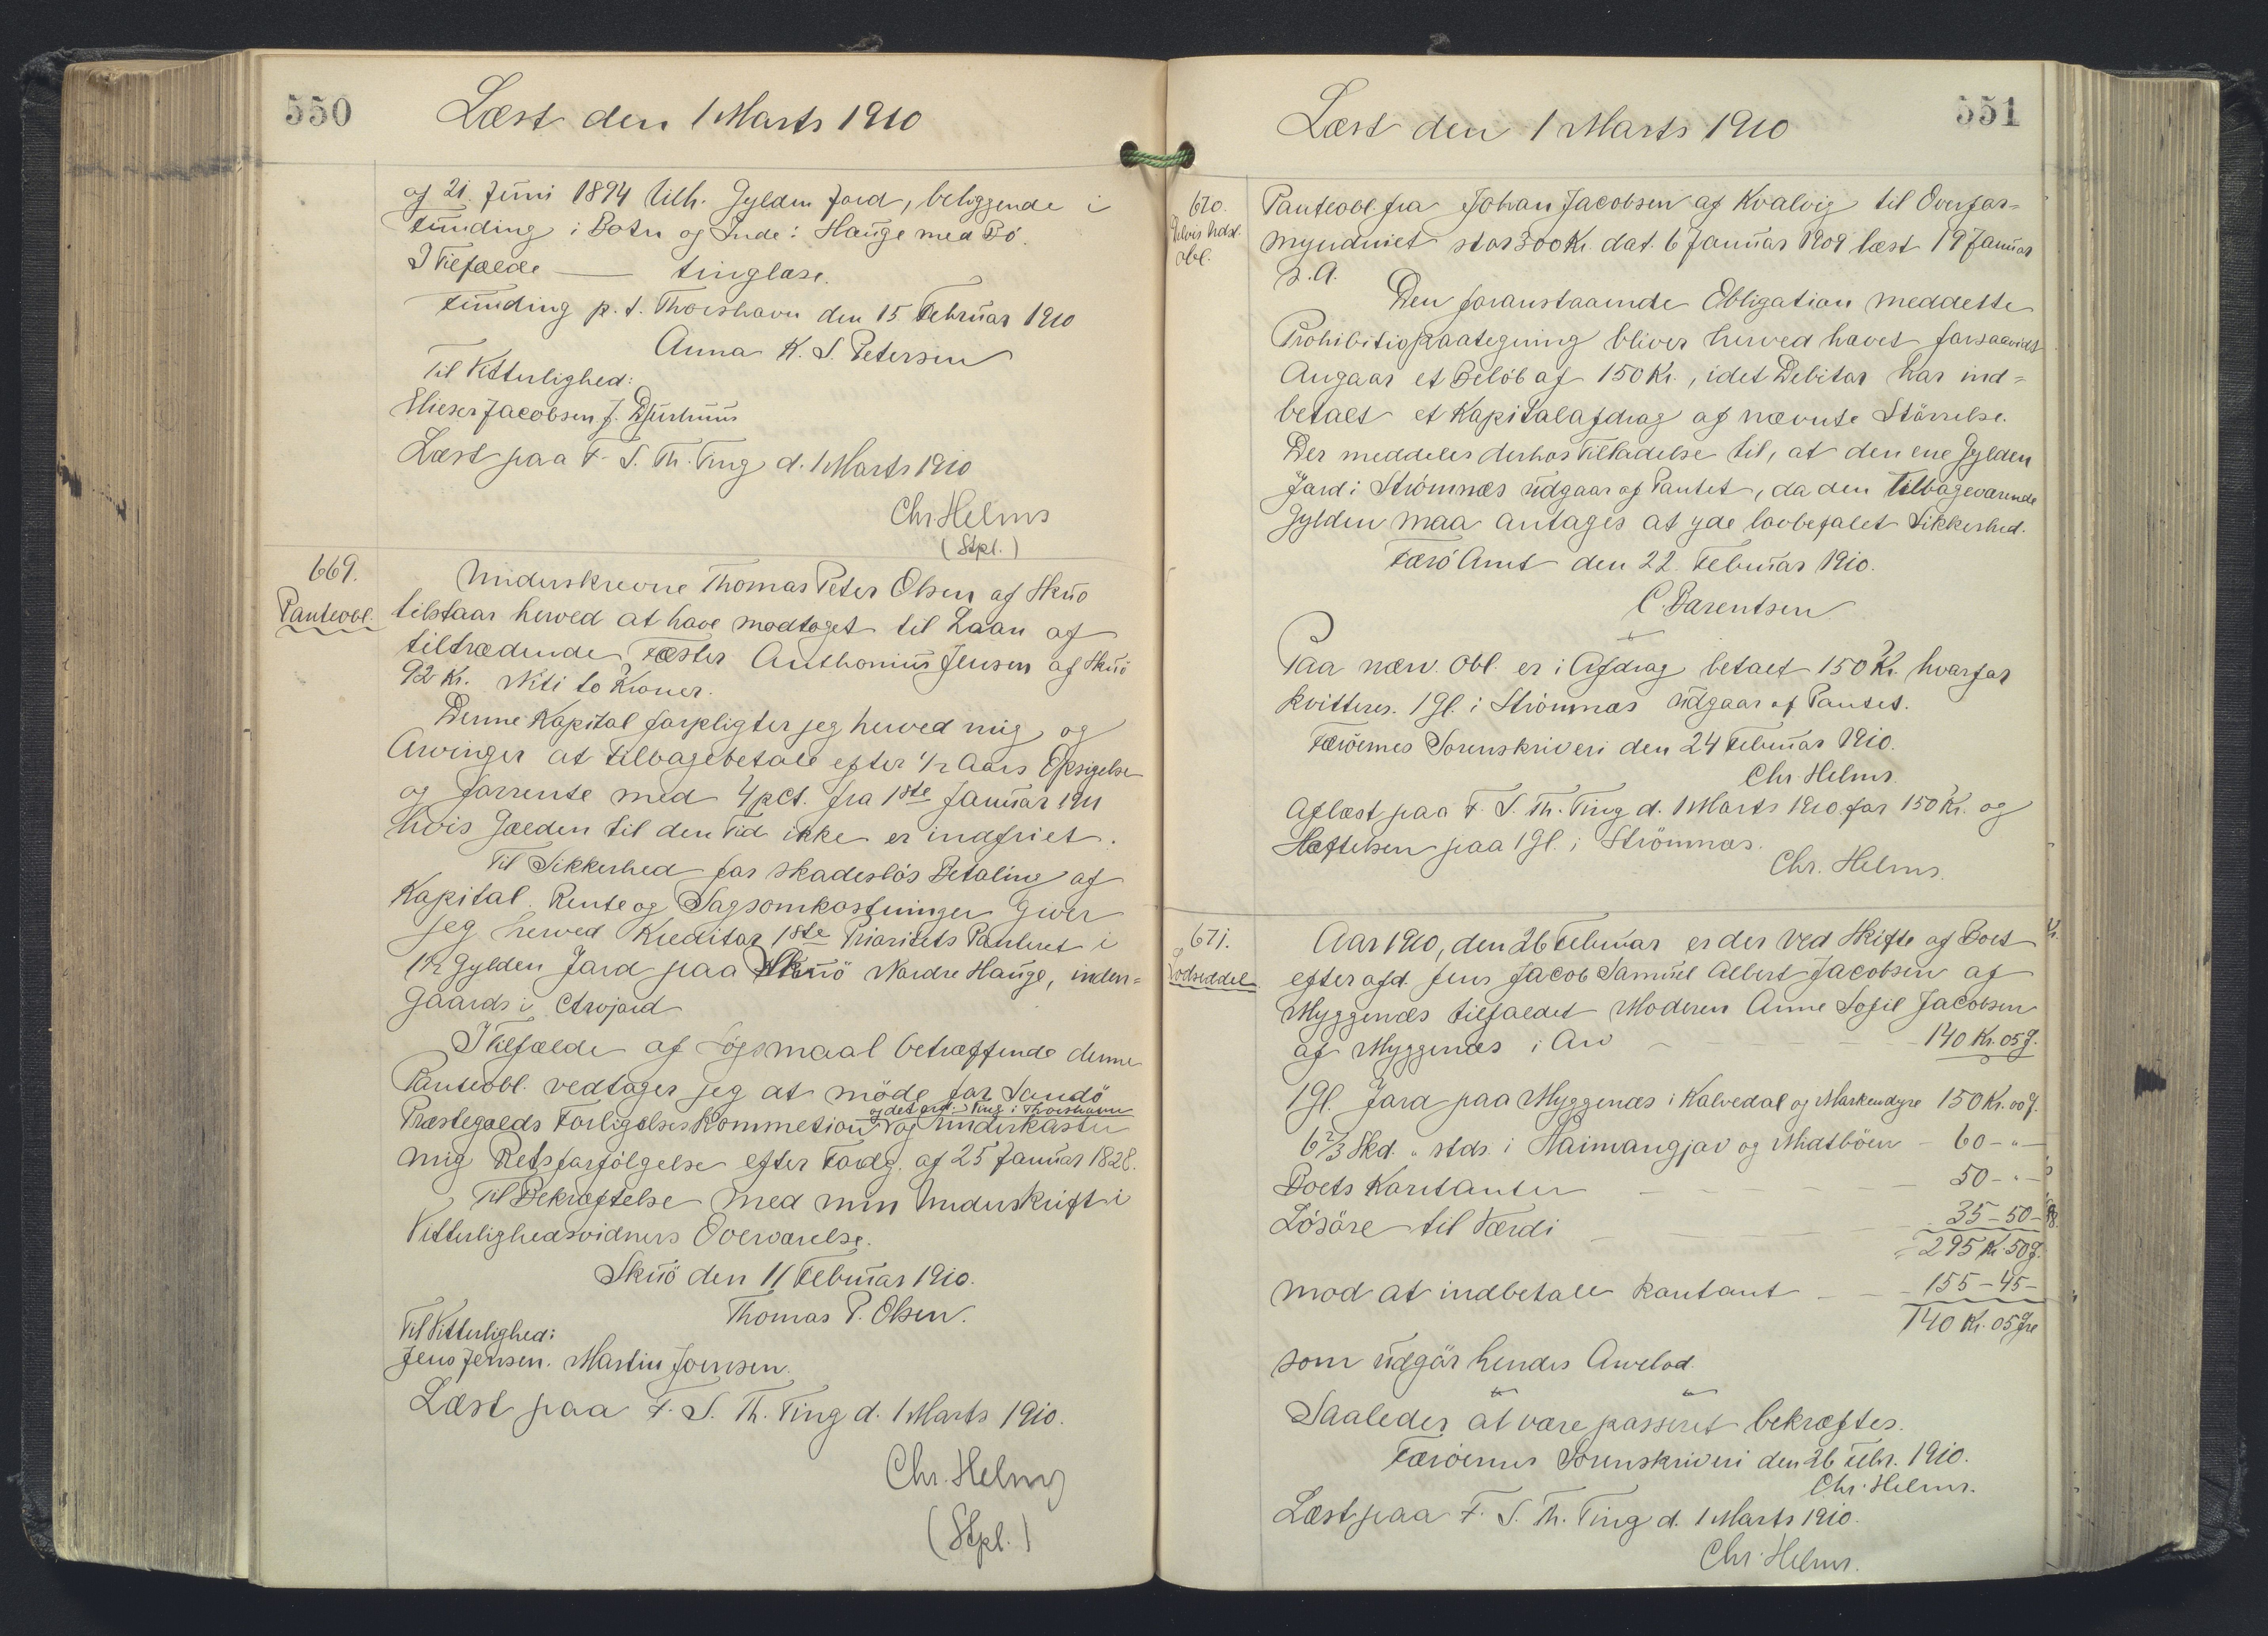 550
Læst den 1 Marts 1910
af 21. Juni 1894 tilh. Gylden Jord, beliggende i
Funding i Botn og Inde i Hauge med Bö.
I Tilfælde — tinglæse.
Funding p. t. Thorshavn den 15 Februar 1910
Anna K. S. Petersen
Til Vitterlighed:
Elieser Jacobsen J. Djurhuus
Læst paa F. S. Th. Ting d. 1 Marts 1910
Chr Helms
(Stpl.)
669.
Panteobl.
Underskrevne Thomas Peter Olsen af Skuö
tilstaar herved at have modtaget til Laan af
tiltrædende Fæster Anthonius Jensen af Skuö
92 Kr. Niti to Kroner.
Denne Kapital forpligter jeg herved mig og
Arvinger at tilbagebetale efter 1/2 Aars Opsigelse
og forrente med 4 pCt. fra 1ste Januar 1911
hvis Gælden til den Tid ikke er indfriet.
Til Sikkerhed for skadeslös Betaling af
Kapital. Rente og Sagsomkostninger giver
jeg herved Kreditor 1ste Prioritets Panteret i
1 1/2 Gylden Jord paa Skuö Nordre Hauge, inden-
gaards i Arvejord
I Tilfælde af Sögsmaal betræffende denne
Panteobl. vedtager jeg at möde for Sandö
og det ord. Ting i Thorshavn
Præstegælds Forligelses Kommetion og underkaster
mig Retsforfölgelse efter Fordg. af 25 Januar 1828.
Til Bekræftelse med min Underskrift i
Vitterlighedsvidners Overværelse.
Skuö den 11 Februar 1910.
Thomas P. Olsen.
Til Vitterlighed:
Jens Jensen. Martin Joensen.
Læst paa F. S. Th. Ting d. 1 Marts 1910.
Chr. Helms
(Stpl.)
551
Læst den 1 Marts 1910
670.
Delvis Udsl.
Obl.
Panteobl. fra Johan Jacobsen af Kvalvig til Overfor-
mynderiet stor 300 Kr. dat. 6 Januar 1909 læst 19 Januar
s. A.
Den foranstaaende Obligation meddelte
Prohibitivpaategning bliver herved hævet forsaavidt
Angaar et Belöb af 150 Kr., idet Debitor har ind-
betalt et Kapitalafdrag af nævnte Störrelse.
Der meddeles derhos Tilladelse til, at den ene Gylden
Jord i Strömnæs udgaar af Pantet, da den tilbageværende
Gylden maa antages at yde lovbefalet Sikkerhed.
Færö Amt den 22. Februar 1910.
C. Bærentsen
Paa nærv. Obl. er i Afdrag betalt 150 Kr. hvorfor
kvitteres. 1 Gl. i Strömnæs udgaar af Pantet.
Færöernes Sorenskriveri den 24 Februar 1910.
Chr. Helms.
Aflæst paa F. S. Th. Ting d. 1 Marts 1910 for 150 Kr. og
Hæftelsen paa 1 Gl. i Strömnæs.
Chr. Helms.
671.
Lodseddel
Aar 1910, den 26 Februar er der ved Skifte af Boet
efter afd. Jens Jacob Samuel Albert Jacobsen af
Myggenæs tilfaldet Moderen Anne Sofie Jacobsen
af Myggenæs i Arv — 140 Kr. 05 Ø.
1 Gl. Jord paa Myggenæs i Kalvedal og Markendyre 150 Kr. 00 Ø.
6 2/3 Skd. " stds. i Haimangjov og Midtböen - 60 - " -
Boets Kontanter — 50 - " -
Lösöre til Værdi — 35 - 50 -
295 Kr. 50 Ø.
mod at indbetale kontant — 155 - 45 -
140 Kr. 05 Øre
som udgör hendes Arvelod.
Saaledes at være passeret bekræftes.
Færöernes Sorenskriveri den 26 Febr. 1910.
Chr. Helms.
Læst paa F. S. Th. Ting d. 1 Marts 1910.
Chr. Helms.